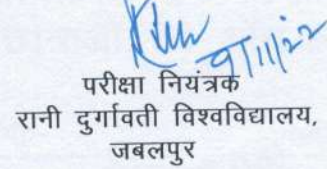 9/11/22
परीक्षा नियंत्रक
रानी दुर्गावती विश्वविद्यालय,
जबलपुर